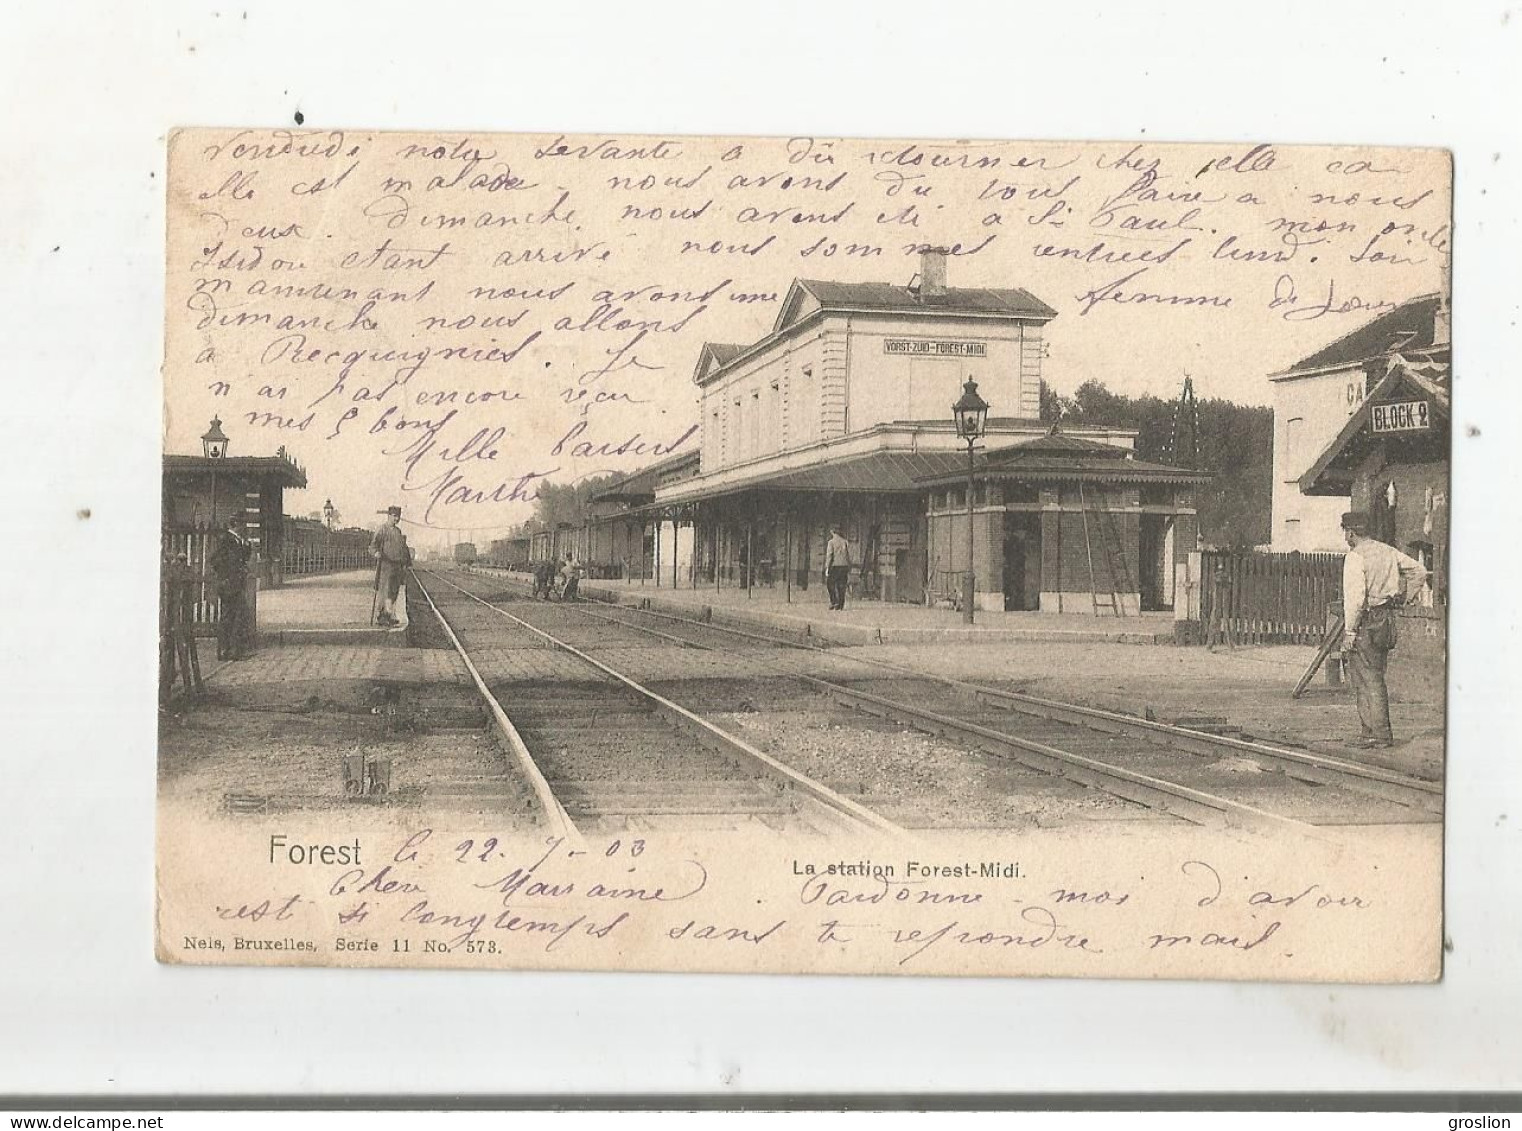 vendredi notre servante a dû retourner chez elle car
elle est malade. nous avons du tous faire a nous
deux. dimanche nous avons été a St Paul. mon oncle
Isidore etant arrivé nous sommes rentrées lundi. Soir
maintenant nous avons une femme de
dimanche nous allons
a Recquignies. Je
n'ai pas encore reçu
mes bons
Mille baisers
Marthe
VORST-ZUID-FOREST-MIDI
CA
BLOCK 2
Forest le 22-7-03
La station Forest-Midi.
Chere Marraine. Pardonne-moi d'avoir
resté si longtemps sans te reprondre mais
Nels, Bruxelles, Serie 11 No. 573.
www.delcampe.net
groslion